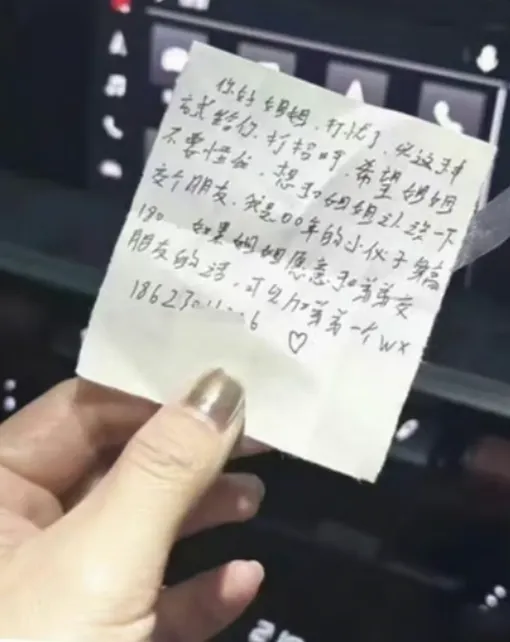 你好姐姐,打扰了,以这种
方式给你打招呼,希望姐姐
不要怪我,想和姐姐认识一下
交个朋友,我是00年的小伙子身高
180 如果姐姐愿意和弟弟交
朋友的话,可以加弟弟一个wx
18623 6 ♡